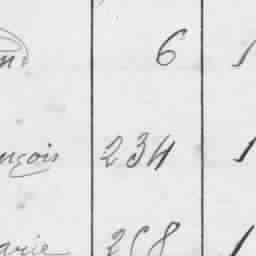 6 1
nçois 234 1
arie 258 1